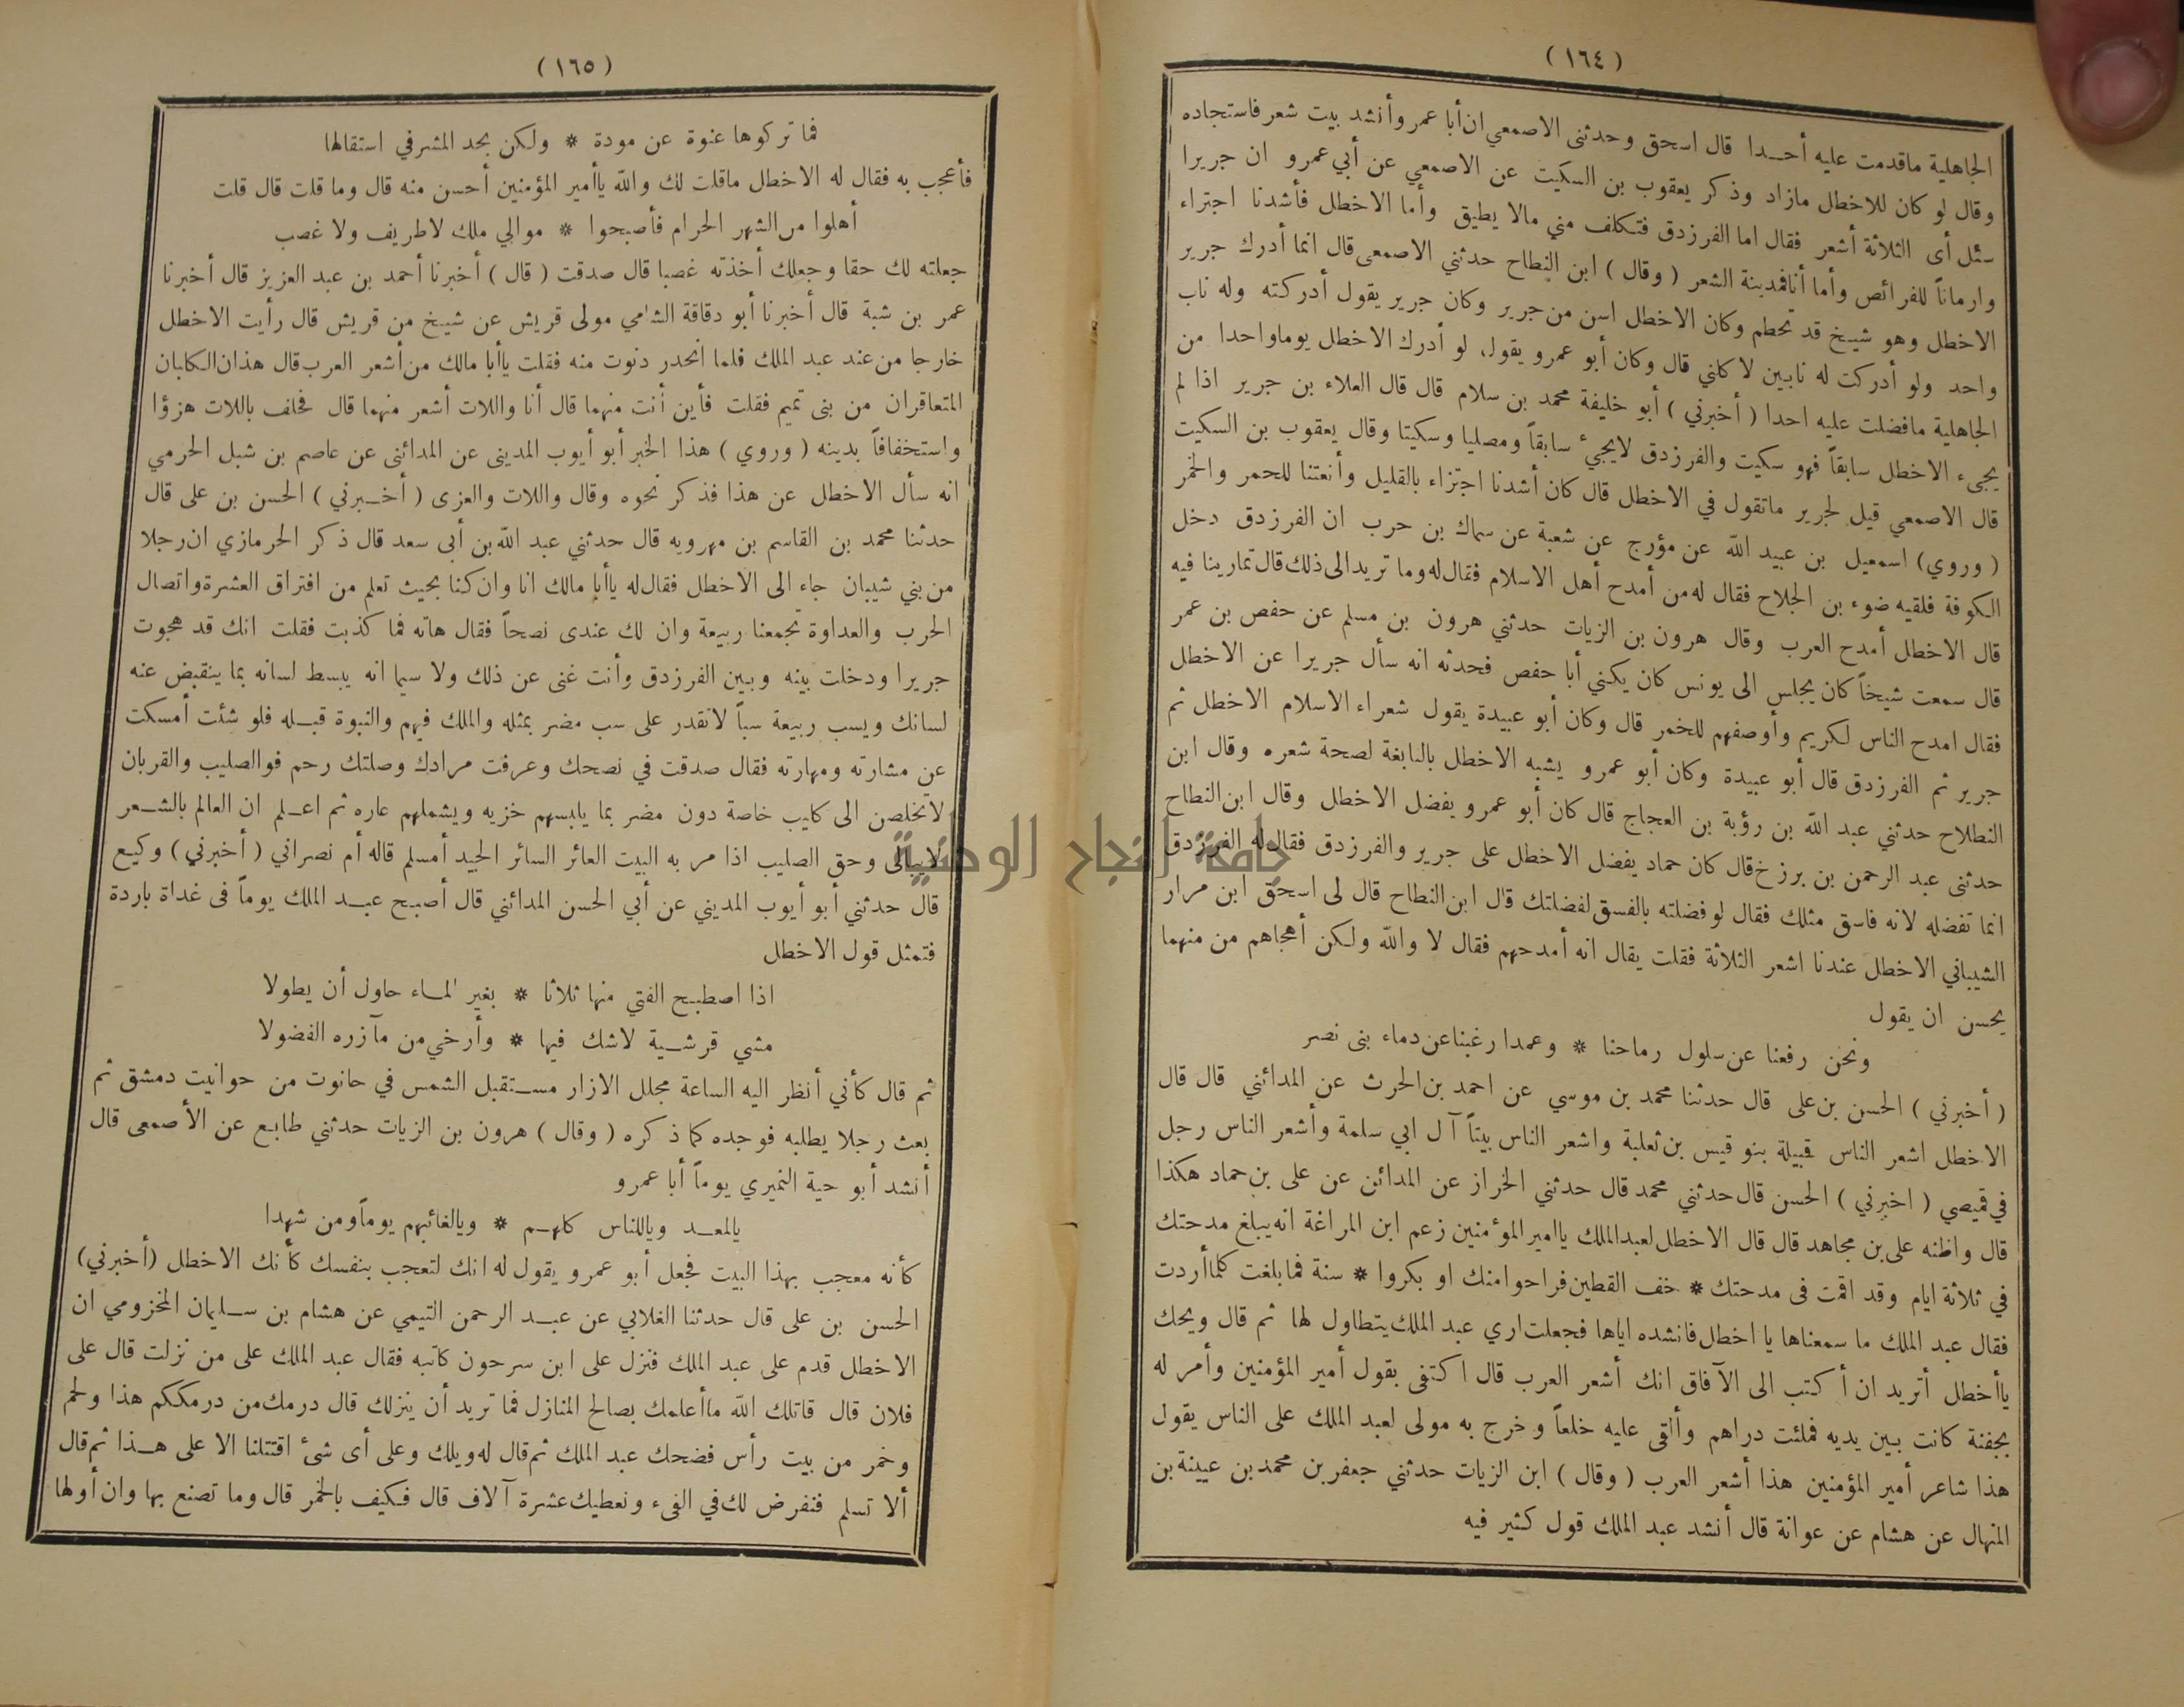 ( ١٦٤ )
الجاهلية ماقدمت عليه أحدا قال اسحق وحدثني الاصمعي ان أبا عمرو أنشد بيت شعر فاستجاده
وقال لو كان للاخطل مازاد وذكر يعقوب بن السكيت عن الاصمعي عن أبي عمرو ان جريرا
سئل أى الثلاثة أشعر فقال اما الفرزدق فتكلف مني مالا يطيق وأما الاخطل فأشدنا اجتزاء
وارماناً للفرائص وأما أنا فمدينة الشعر ( وقال ) ابن النطاح حدثني الاصمعى قال انما أدرك جرير
الاخطل وهو شيخ قد تحطم وكان الاخطل اسن من جرير وكان جرير يقول أدركته وله ناب
واحد ولو أدركت له نابين لا كلني قال وكان أبو عمرو يقول لو أدرك الاخطل يوما واحدا من
الجاهلية مافضلت عليه احدا ( أخبرني ) أبو خليفة محمد بن سلام قال قال العلاء بن جرير اذا لم
يجىء الاخطل سابقاً فهو سكيت والفرزدق لايجئ سابقاً ومصليا وسكيتا وقال يعقوب بن السكيت
قال الاصمعي قيل لجرير ماتقول في الاخطل قال كان أشدنا اجتزاء بالقليل وأنعتنا للحمر والخمر
( وروي ) اسمعيل بن عبيد الله عن مؤرج عن شعبة عن سماك بن حرب ان الفرزدق دخل
الكوفة فلقيه ضوء بن الجلاح فقال له من أمدح أهل الاسلام فقال له وما تريد الى ذلك قال تمارينا فيه
قال الاخطل أمدح العرب وقال هرون بن الزيات حدثني هرون بن مسلم عن حفص بن عمر
قال سمعت شيخاً كان يجلس الى يونس كان يكني أبا حفص فحدثه انه سأل جريرا عن الاخطل
فقال امدح الناس لكريم وأوصفهم للخمر قال وكان أبو عبيدة يقول شعراء الاسلام الاخطل ثم
جرير ثم الفرزدق قال أبو عبيدة وكان أبو عمرو يشبه الاخطل بالنابغة لصحة شعره وقال ابن
النطلاح حدثني عبد الله بن رؤبة بن العجاج قال كان أبو عمرو يفضل الاخطل وقال ابن النطاح
حدثنى عبد الرحمن بن برزخ قال كان حماد يفضل الاخطل على جرير والفرزدق فقال له الفرزدق
انما تفضله لانه فاسق مثلك فقال لو فضلته بالفسق لفضلتك قال ابن النطاح قال لى اسحق ابن مرار
الشيباني الاخطل عندنا اشعر الثلاثة فقلت يقال انه أمدحهم فقال لا والله ولكن أهجاهم من منهما
يحسن ان يقول
ونحن رفعنا عن سلول رماحنا * وعمدا رغبنا عن دماء بنى نصر
( أخبرني ) الحسن بن على قال حدثنا محمد بن موسي عن احمد بن الحرث عن المدائني قال قال
الاخطل اشعر الناس قبيلة بنو قيس بن ثعلبة واشعر الناس بيتاً آل ابي سلمة وأشعر الناس رجل
في قميصي ( اخبرني ) الحسن قال حدثني محمد قال حدثني الخراز عن المدائن عن على بن حماد هكذا
قال واظنه على بن مجاهد قال قال الاخطل لعبد الملك ياامير المؤمنين زعم ابن المراغة انه يبلغ مدحتك
في ثلاثة ايام وقد اقمت فى مدحتك * خف القطين فراحوا منك او بكروا * سنة فما بلغت كلما أردت
فقال عبد الملك ما سمعناها يا اخطل فانشده اياها فجعلت اري عبد الملك يتطاول لها ثم قال ويحك
ياأخطل أتريد ان أكتب الى الآفاق انك أشعر العرب قال اكتفى بقول أمير المؤمنين وأمر له
بجفنة كانت بين يديه فملئت دراهم وألقى عليه خلعاً وخرج به مولى لعبد الملك على الناس يقول
هذا شاعر أمير المؤمنين هذا أشعر العرب ( وقال ) ابن الزيات حدثني جعفر بن محمد بن عيينة بن
المنهال عن هشام عن عوانة قال أنشد عبد الملك قول كثير فيه
( ١٦٥ )
فما تركوها عنوة عن مودة * ولكن بحد المشرفي استقالها
فأعجب به فقال له الاخطل ماقلت لك والله ياأمير المؤمنين أحسن منه قال وما قلت قال قلت
أهلوا من الشهر الحرام فأصبحوا * موالي ملك لاطريف ولا غصب
جعلته لك حقا وجعلك أخذته غصبا قال صدقت ( قال ) أخبرنا أحمد بن عبد العزيز قال أخبرنا
عمر بن شبة قال أخبرنا أبو دقاقة الشامي مولى قريش عن شيخ من قريش قال رأيت الاخطل
خارجا من عند عبد الملك فلما انحدر دنوت منه فقلت ياأبا مالك من أشعر العرب قال هذان الكلبان
المتعاقران من بنى تميم فقلت فأين أنت منهما قال أنا واللات أشعر منهما قال فحلف باللات هزؤا
واستخفافاً بدينه ( وروي ) هذا الخبر أبو أيوب المدينى عن المدائنى عن عاصم بن شبل الحرمي
انه سأل الاخطل عن هذا فذكر نحوه وقال واللات والعزى ( أخبرني ) الحسن بن على قال
حدثنا محمد بن القاسم بن مهرويه قال حدثني عبد الله بن أبى سعد قال ذكر الحرمازي ان رجلا
من بني شيبان جاء الى الاخطل فقال له ياأبا مالك انا وان كنا بحيث تعلم من افتراق العشرة واتصال
الحرب والعداوة تجمعنا ربيعة وان لك عندى نصحاً فقال هاته فما كذبت فقلت انك قد هجوت
جريرا ودخلت بينه وبين الفرزدق وأنت غنى عن ذلك ولا سيما انه يبسط لسانه بما ينقبض عنه
لسانك ويسب ربيعة سباً لاتقدر على سب مضر بمثله والملك فيهم والنبوة قبله فلو شئت أمسكت
عن مشارته ومهارته فقال صدقت في نصحك وعرفت مرادك وصلتك رحم فوالصليب والقربان
لاتخلصن الى كليب خاصة دون مضر بما يلبسهم خزيه ويشملهم عاره ثم اعلم ان العالم بالشعر
لايبالى وحق الصليب اذا مر به البيت العائر السائر الجيد أمسلم قاله أم نصراني ( أخبرني ) وكيع
قال حدثني أبو أيوب المديني عن أبي الحسن المدائني قال أصبح عبد الملك يوماً فى غداة باردة
فتمثل قول الاخطل
اذا اصطبح الفتي منها ثلاثا * بغير الماء حاول أن يطولا
مشي قرشية لاشك فيها * وأرخي من مآزره الفضولا
ثم قال كأني أنظر اليه الساعة مجلل الازار مستقبل الشمس في حانوت من حوانيت دمشق ثم
بعث رجلا يطلبه فوجده كما ذكره ( وقال ) هرون بن الزيات حدثني طابع عن الأصمعى قال
أنشد أبو حية النميري يوماً أبا عمرو
يالمعد وياللناس كلهم * ويالغائبهم يوماً ومن شهدا
كأنه معجب بهذا البيت فجعل أبو عمرو يقول له انك لتعجب بنفسك كأنك الاخطل (أخبرني)
الحسن بن على قال حدثنا الغلابي عن عبد الرحمن التيمي عن هشام بن سليمان المخزومي ان
الاخطل قدم على عبد الملك فنزل على ابن سرحون كاتبه فقال عبد الملك على من نزلت قال على
فلان قال قاتلك الله ماأعلمك بصالح المنازل فما تريد أن ينزلك قال درمك من درمككم هذا ولحم
وخمر من بيت رأس فضحك عبد الملك ثم قال له ويلك وعلى أى شئ اقتتلنا الا على هذا ثم قال
ألا تسلم فنفرض لك في الفىء ونعطيك عشرة آلاف قال فكيف بالخمر قال وما تصنع بها وان أولها
جامعة النجاح الوطنية